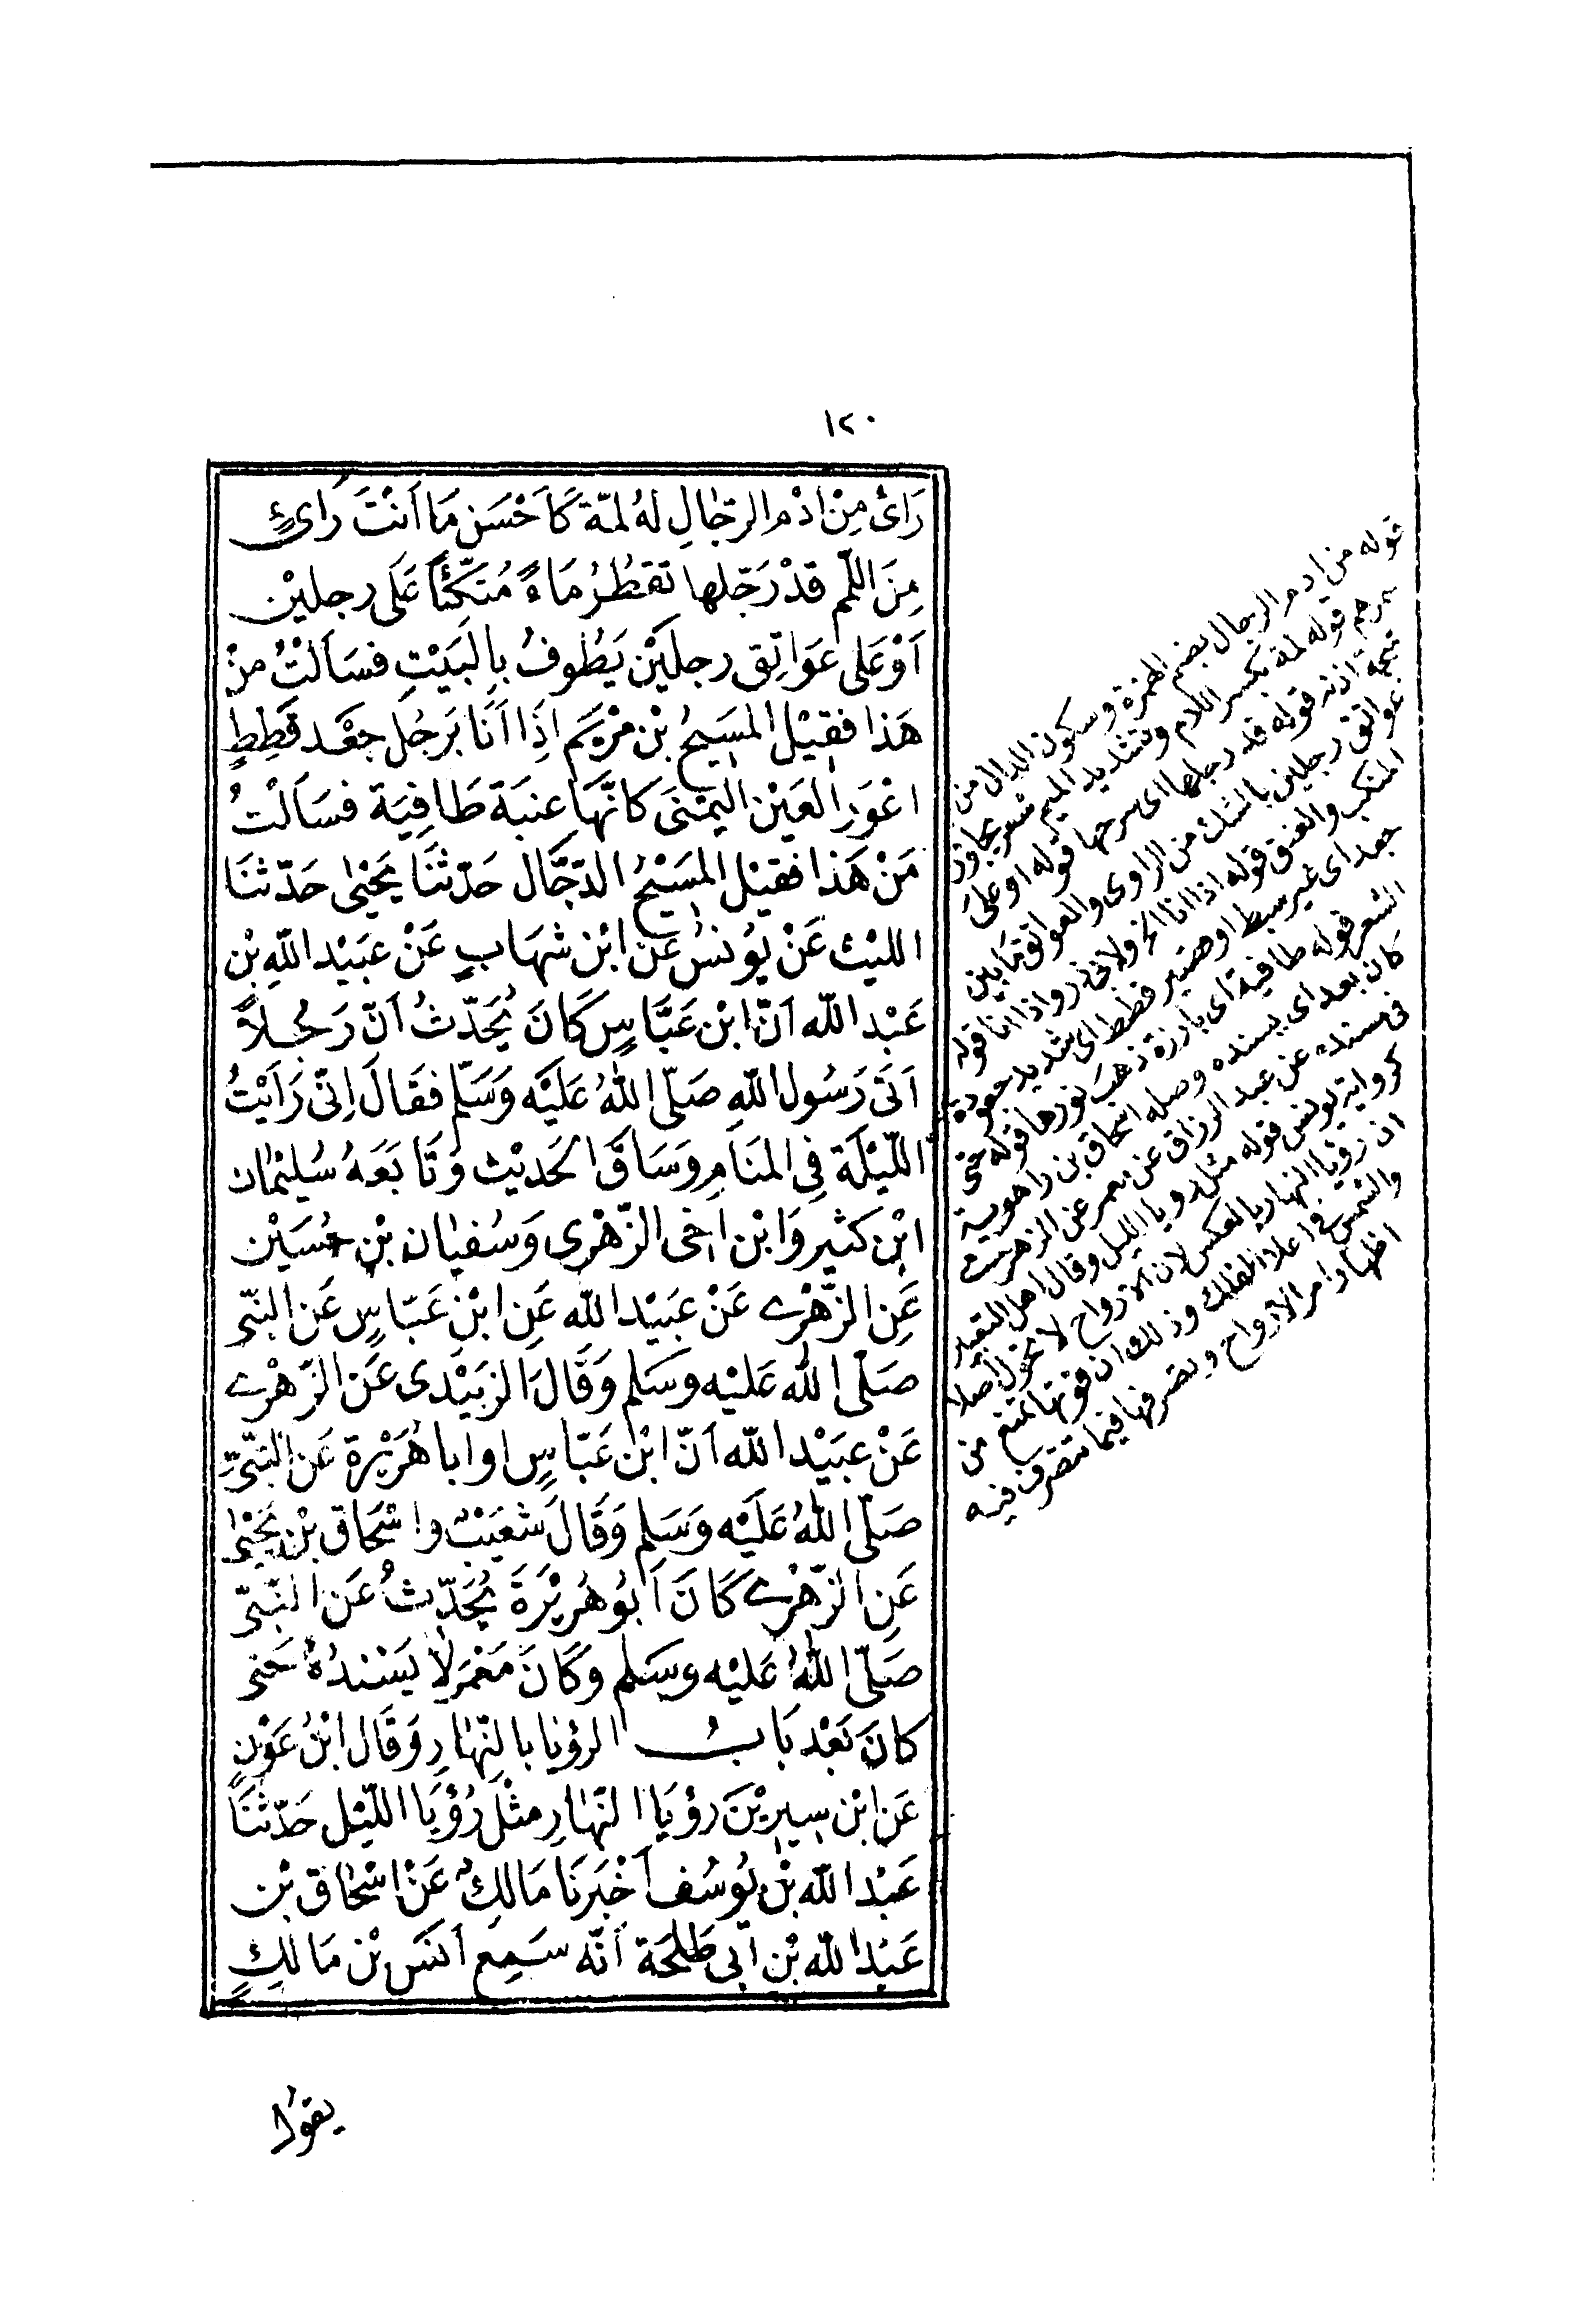 ١٢٠
رَائٍ مِنْ اُدْمِ الرِّجَالِ لَهُ لمَّة كَأَحْسَنِ مَا أَنْتَ رَائٍ
مِنَ اللِّمَم قَدْ رَجَّلَها تَقْطُرُ مَاءً مُتَّكِئًا عَلَى رجلَيْن
أَوْ عَلَى عَوَاتِق رجلَيْن يَطُوفُ بِالْبَيْتِ فَسَأَلْتُ مَنْ
هَذا فقِيْل الْمَسِيحُ بْن مَرْيَم اِذَا أَنَا بَرَجُل جَعْد قَطِطٍ
اعْوَرِ الْعَيْن الْيُمْنَى كَانَّهَا عنبَة طَافِيَة فَسَأَلْتُ
مَنْ هَذا فقِيْل الْمَسِيْحُ الدجَّال حَدّثنَا يَحْيٰى حَدّثَنَا
اللَّيْث عَنْ يُونُس عَن ابْن شهَابٍ عَنْ عبَيْد اللّٰهِ بْن
عَبْد اللّٰه أَنَّ ابْن عَبَّاسٍ كَانَ يُحَدّثُ أَنّ رَجُلاً
اَتَى رَسُول اللّٰهِ صَلّى اللّٰهُ عَلَيْه وَسَلّم فقَالَ اِنّى رَأَيْتُ
اللّيْلَةَ فِى الْمَنَامِ وَسَاقَ الْحَدِيْث وَتَابَعَهُ سُلَيْمَان
ابْن كَثِير وَابْن أَخى الزّهْرى وَسُفيَان بْن حُسَيْن
عَن الزُّهْرى عَنْ عبَيْد اللّٰه عَن ابْنِ عَبّاسٍ عَن النَّبىّ
صَلّى اللّٰه عَليْه وسَلم وَقَالَ الزّبَيْدى عَن الزّهْرى
عَنْ عبَيْد اللّٰه أَنّ ابْن عَبّاسٍ او ابا هُرَيْرة عَن النَّبىِّ
صَلّى اللّٰهُ عَلَيْه وَسَلم وَقَالَ شعَيْب واسْحَاق بْن يَحْيٰى
عَن الزّهْرى كَانَ أَبُو هُرَيْرَةَ يُحَدّثُ عَن النَّبىّ
صَلّى اللّٰهُ عَليْه وسَلم وَكَانَ مَعْمَر لَا يسْندُهُ حَتى
كَانَ بَعْد بَابُ الرؤيا بالنّهَارِ وَقَال ابْنُ عَوْنٍ
عَن ابْن سِيرِيْنَ رؤيَا النّهَارِ مثْل رُؤْيَا اللّيْل حَدّثنَا
عَبْد اللّٰه بْن يُوسُف أَخْبَرَنَا مَالِكٌ عَنْ اسْحَاق بْن
عَبْد اللّٰه بْن أَبى طَلحَة أَنّه سَمِعَ أَنَس بْن مَالِكٍ
قوله من ادم الرجال بضم الهمزة وسكون الدال من
سمر جم قوله لمة بكسر اللام وتشديد الميم شعر يجاوز
شحمة اذنه قوله قد رجلها اى سرحها قوله او على
عواتق رجلين بالشك من الراوى والعواتق ما بين
المنكب والعنق قوله اذا انا الخ ولابى ذر واذا انا قوله
جعد اى غير سبط او قصير قطط اى شديد جعودة
الشعر قوله طافية اى بارزة ذهب نورها قوله حتى
كان بعد اى يسنده وصله اسحاق بن راهويه
فى مسنده عن عبد الرزاق عن معمر عن الزهرى
كرواية يونس قوله مثل رويا الليل وقال اهل التعبير
ان رؤيا النهار بالعكس لان الارواح لا تجول اصلا
والشمس فى اعلا الفلك وذلك ان قوتها تمنع من
اظهار امر الارواح وتصرفها فيما تتصرف فيه
يقول